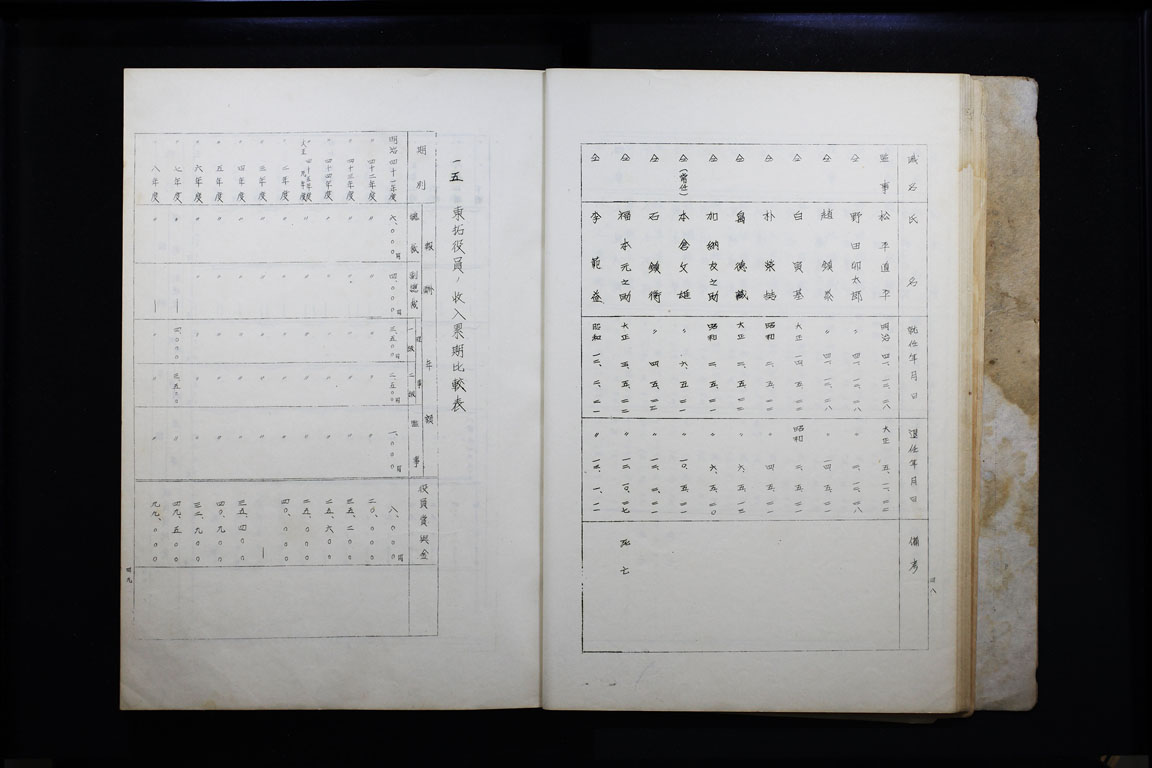 職名 氏名 就任年月日 退任年月日 備考
監事 松平直平 明治 四一、一二、二八 大正 五、一、二二
仝 野田卯太郎 〃 四一、一二、二八 〃 二、一二、二八
仝 趙鎮泰 〃 四一、一二、二八 〃 一四、五、一一
仝 白寅基 大正 一四、五、一二 昭和 二、五、一一
仝 朴榮喆 昭和 二、五、一二 〃 四、五、一一
仝 島德藏 大正 三、五、二二 〃 六、五、一三
仝 加納友之助 昭和 二、五、二一 〃 六、五、二〇
仝(常任) 本倉文雄 〃 六、五、二一 〃 一〇、五、二一
仝 石鎮衡 〃 四、五、
仝 福本元之助 大正 三、五、二二 〃 一三、一〇、二七 死亡
仝 李範益 昭和 一二、二、二一 〃
四八
一五 東拓役員ノ收入累期比較表
期別 報酬年額 役員賞與金
總裁 副總裁 理事 一級 二級 監事
明治四十一年度 六、〇〇〇円 四、〇〇〇円 三、五〇〇円 二、五〇〇円 一、〇〇〇円 八、〇〇〇円
〃 四十二年度 〃 〃 〃 〃 〃 二〇、〇〇〇
〃 四十三年度 〃 〃 〃 〃 〃 三五、二〇〇
〃 四十四年度 〃 〃 〃 〃 〃 二五、六〇〇
〃 四十五年度 大正元年度 〃 〃 〃 〃 〃 二五、〇〇〇
〃 二年度 〃 〃 〃 〃 〃 四〇、〇〇〇
〃 三年度 〃 〃 〃 〃 〃 ―
〃 四年度 〃 〃 〃 〃 〃 三五、四〇〇
〃 五年度 〃 〃 〃 〃 〃 四〇、九〇〇
〃 六年度 〃 〃 〃 〃 〃 三二、九〇〇
〃 七年度 〃 ― 四、〇〇〇 三、五〇〇 〃 四九、五〇〇
〃 八年度 〃 ― 〃 〃 〃 九九、〇〇〇
四九